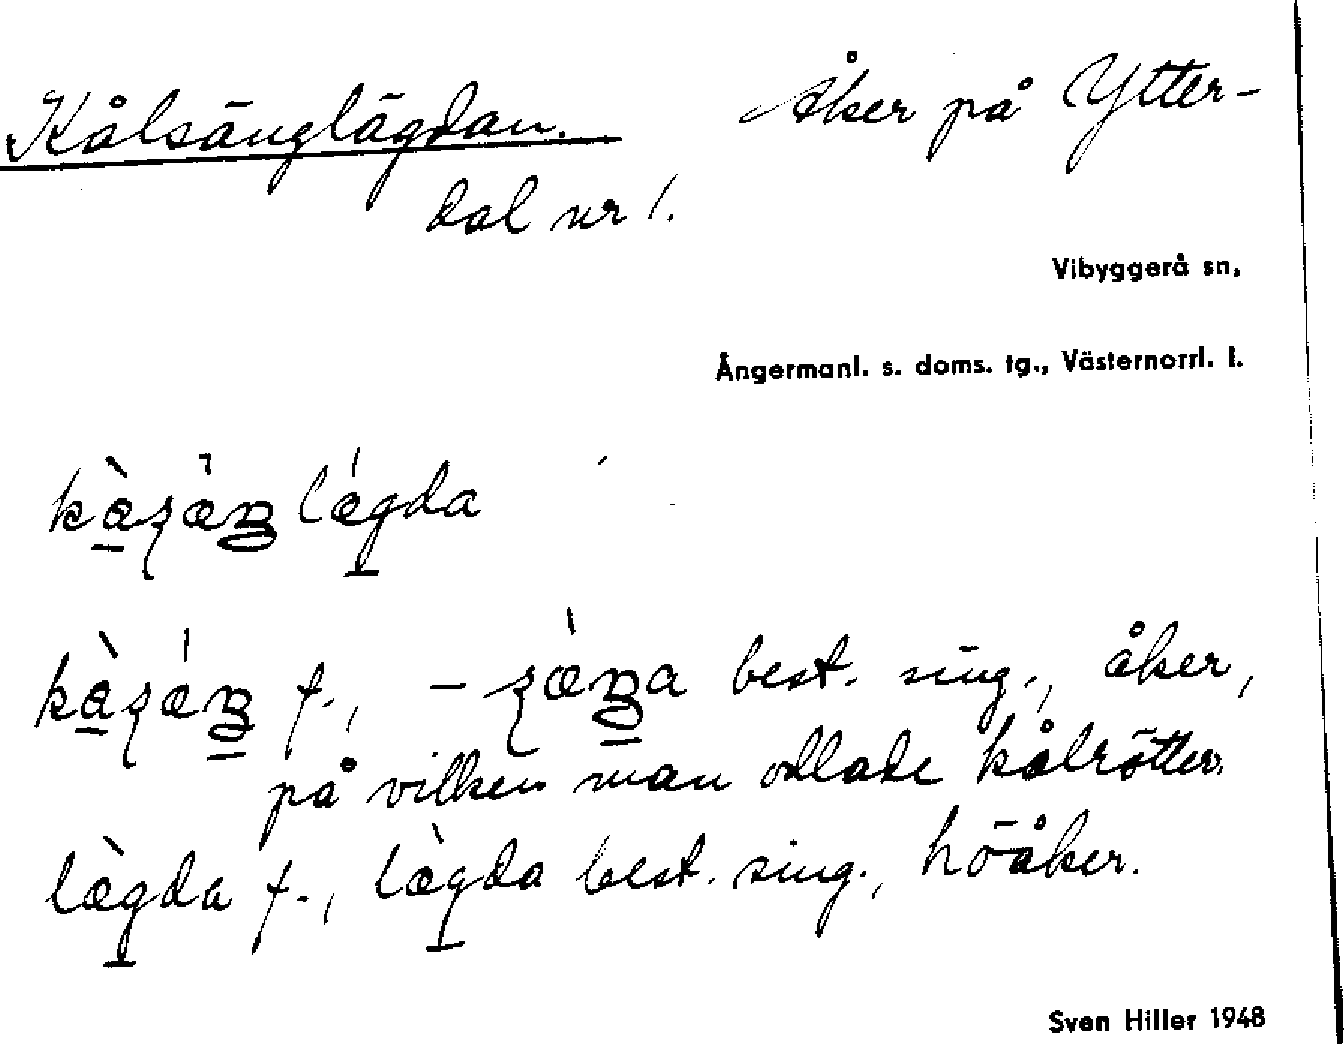 Kålsänglägdan. Åker på Ytter-
dal nr 1.
Vibyggerå sn,
Ångermanl. s. doms. tg., Västernorrl. l.
f., best. sing., åker,
på vilken man odlade kålrötter.
lægda f., lægda best. sing., höåker.
Sven Hiller 1948